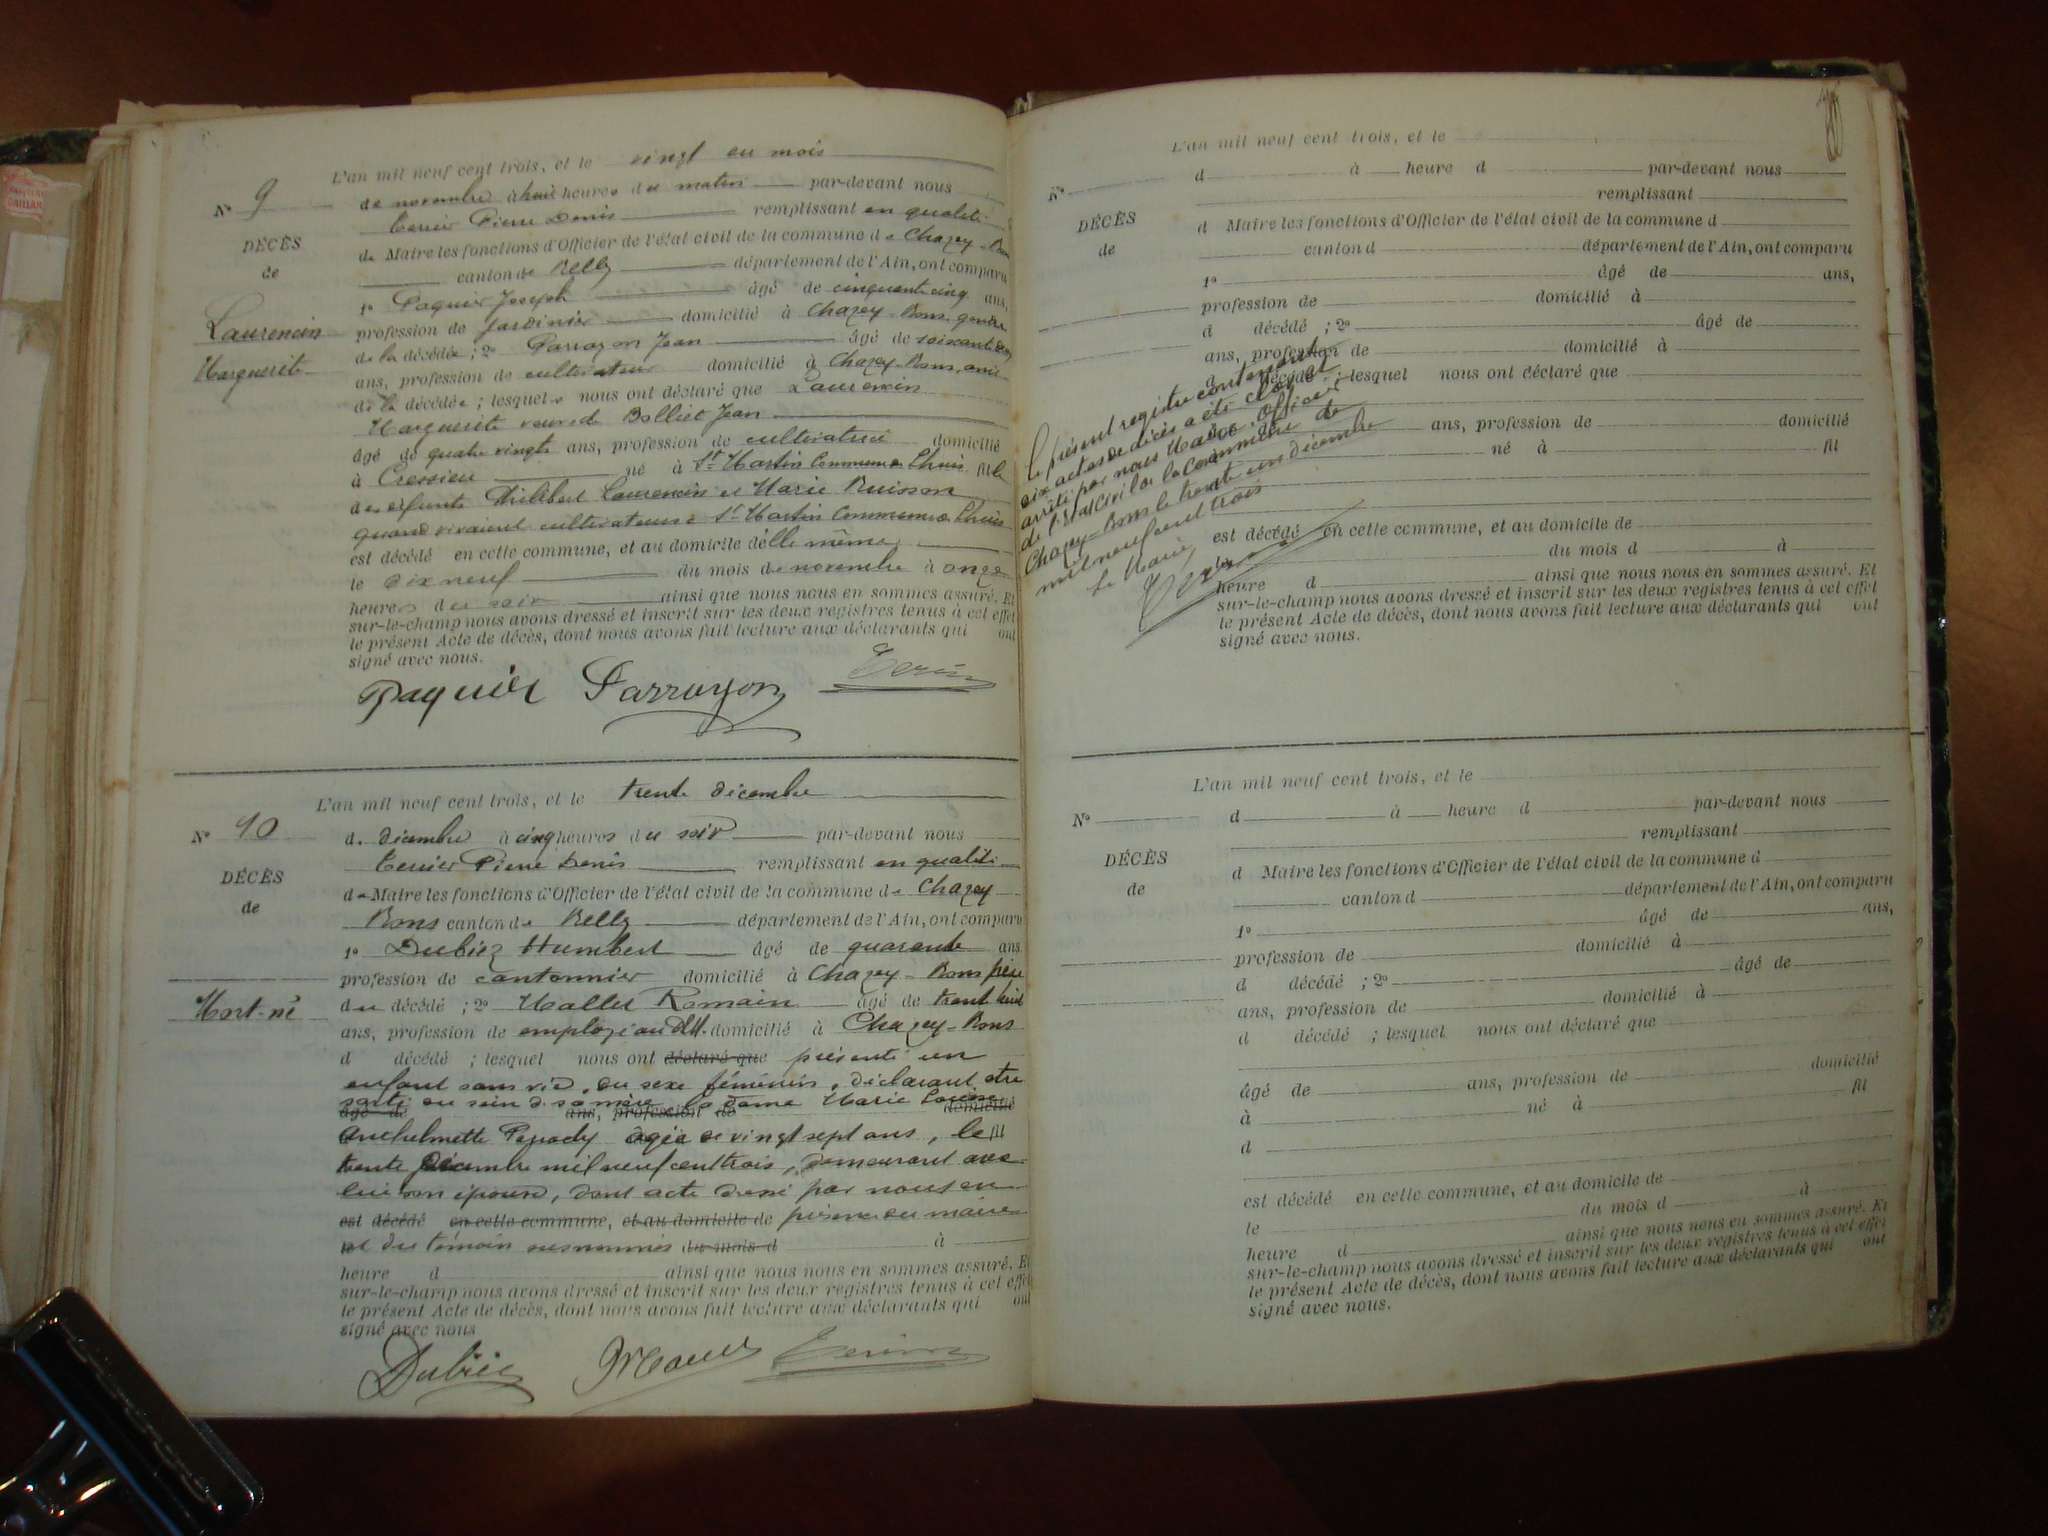 L'an mil neuf cent trois, et le vingt du mois
No 9
de novembre à huit heures du matin par-devant nous
Pierre Denis remplissant en qualité
DÉCÈS
de Maire les fonctions d'Officier de l'état civil de la commune de Chazey-Bons
de
canton de Belley département de l'Ain, ont comparu
1o Paquier Joseph âgé de cinquante cinq ans,
Laurencin
profession de jardinier domicilié à Chazey-Bons gendre
de la décédée ; 2o Parrayon Jean âgé de soixante
Marguerite
ans, profession de cultivateur domicilié à Chazey-Bons, ami
de la décédée ; lesquels nous ont déclaré que Laurencin
Marguerite veuve de Bolliet Jean
âgé de quatre vingts ans, profession de cultivatrice domicilié
à Cressieu né à St Martin Commune fille
des défunts Philibert Laurencin et Marie Buisson
quand vivaient cultivateurs à St Martin Commune
est décédé en cette commune, et au domicile d'elle même
le dix neuf du mois de novembre à onze
heures du soir ainsi que nous nous en sommes assuré. Et
sur-le-champ nous avons dressé et inscrit sur les deux registres tenus à cet effet
le présent Acte de décès, dont nous avons fait lecture aux déclarants qui ont
signé avec nous.
Paquier Parrayon
L'an mil neuf cent trois, et le trente décembre
No 10
d. décembre à cinq heures du soir par-devant nous
Pierre Denis remplissant en qualité
DÉCÈS
de Maire les fonctions d'Officier de l'état civil de la commune de Chazey
de
Bons canton de Belley département de l'Ain, ont comparu
1o Dubiez Humbert âgé de quarante ans
profession de cantonnier domicilié à Chazey-Bons père
Mort-né
du décédé ; 2o Romain âgé de trente huit
ans, profession de employé au domicilié à Chazey-Bons
d décédé ; lesquel nous ont déclaré que présenté un
enfant sans vie, du sexe féminin, déclarant être
sorti du sein de sa mère la dame Marie Louise
âgé de ans, profession de domicilié
Anthelmette âgée de vingt sept ans, le fil
trente décembre mil neuf cent trois, demeurant avec
lui son épouse, dont acte dressé par nous en
est décédé en cette commune, et au domicile de présence du maire
et du témoin susnommés du mois d à
heure d ainsi que nous nous en sommes assuré. Et
sur-le-champ nous avons dressé et inscrit sur les deux registres tenus à cet effet
le présent Acte de décès, dont nous avons fait lecture aux déclarants qui ont
signé avec nous
Dubiez
L'an mil neuf cent trois, et le
No
d à heure d par-devant nous
remplissant
DÉCÈS
d Maire les fonctions d'Officier de l'état civil de la commune d
de
canton d département de l'Ain, ont comparu
1o âgé de ans,
profession de domicilié à
d décédé ; 2o âgé de
ans, profession de domicilié à
d décédé ; lesquel nous ont déclaré que
ans, profession de domicilié
né à fil
est décédé en cette commune, et au domicile de
du mois d à
heure d ainsi que nous nous en sommes assuré. Et
sur-le-champ nous avons dressé et inscrit sur les deux registres tenus à cet effet
le présent Acte de décès, dont nous avons fait lecture aux déclarants qui ont
signé avec nous.
Le présent registre contenant
dix actes de décès a été clos et
arrêté par nous Maire, officier
de l'état civil de la commune de
Chazey-Bons le trente un décembre
mil neuf cent trois
Le Maire,
L'an mil neuf cent trois, et le
No
d à heure d par-devant nous
remplissant
DÉCÈS
d Maire les fonctions d'Officier de l'état civil de la commune d
de
canton d département de l'Ain, ont comparu
1o âgé de ans,
profession de domicilié à
d décédé ; 2o âgé de
ans, profession de domicilié à
d décédé ; lesquel nous ont déclaré que
âgé de ans, profession de domicilié
à né à fil
d
est décédé en cette commune, et au domicile de
le du mois d à
heure d ainsi que nous nous en sommes assuré. Et
sur-le-champ nous avons dressé et inscrit sur les deux registres tenus à cet effet
le présent Acte de décès, dont nous avons fait lecture aux déclarants qui ont
signé avec nous.